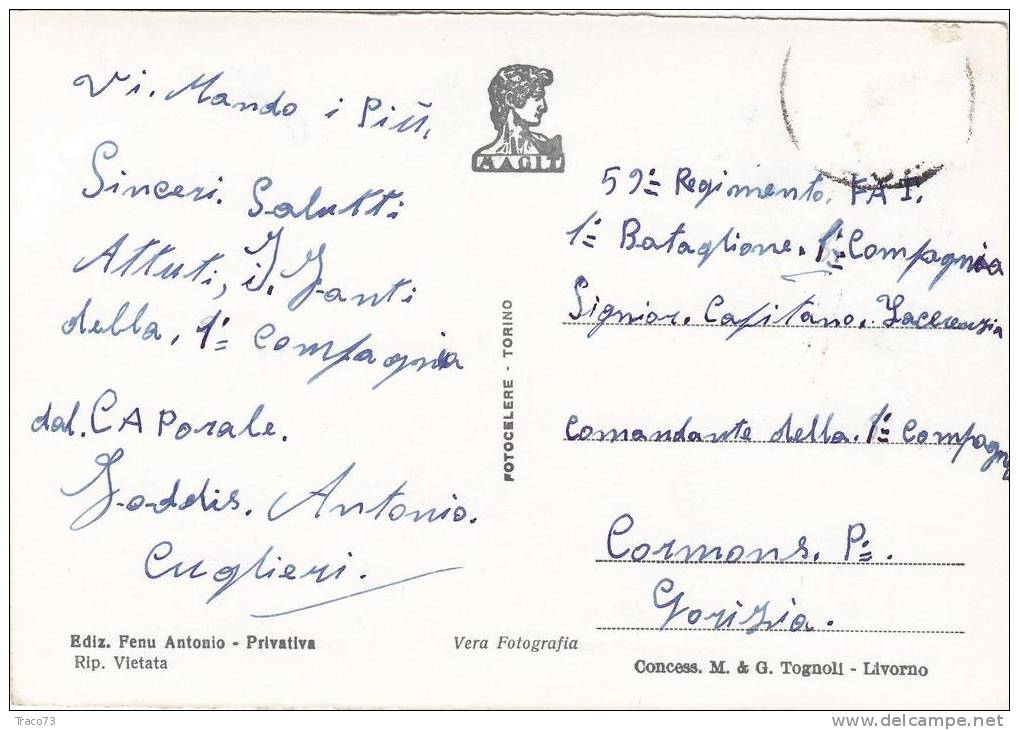 Vi. Mando i Più,
Sinceri. Salutti
Attuti, i.
della, 1ª Compagnia
dal. CAPorale.
Antonio.
Cuglieri.
MAGIT
59º Regimento. FAT.
1º Bataglione. 1ª Compagnia
Signior. Capitano. Lacerenzia
Comandante della. 1ª Compagn
Cormons. P=.
Gorizia.
FOTOCELERE - TORINO
Ediz. Fenu Antonio - Privativa
Rip. Vietata
Vera Fotografia
Concess. M. & G. Tognoli - Livorno
Traco73
delcampe.net